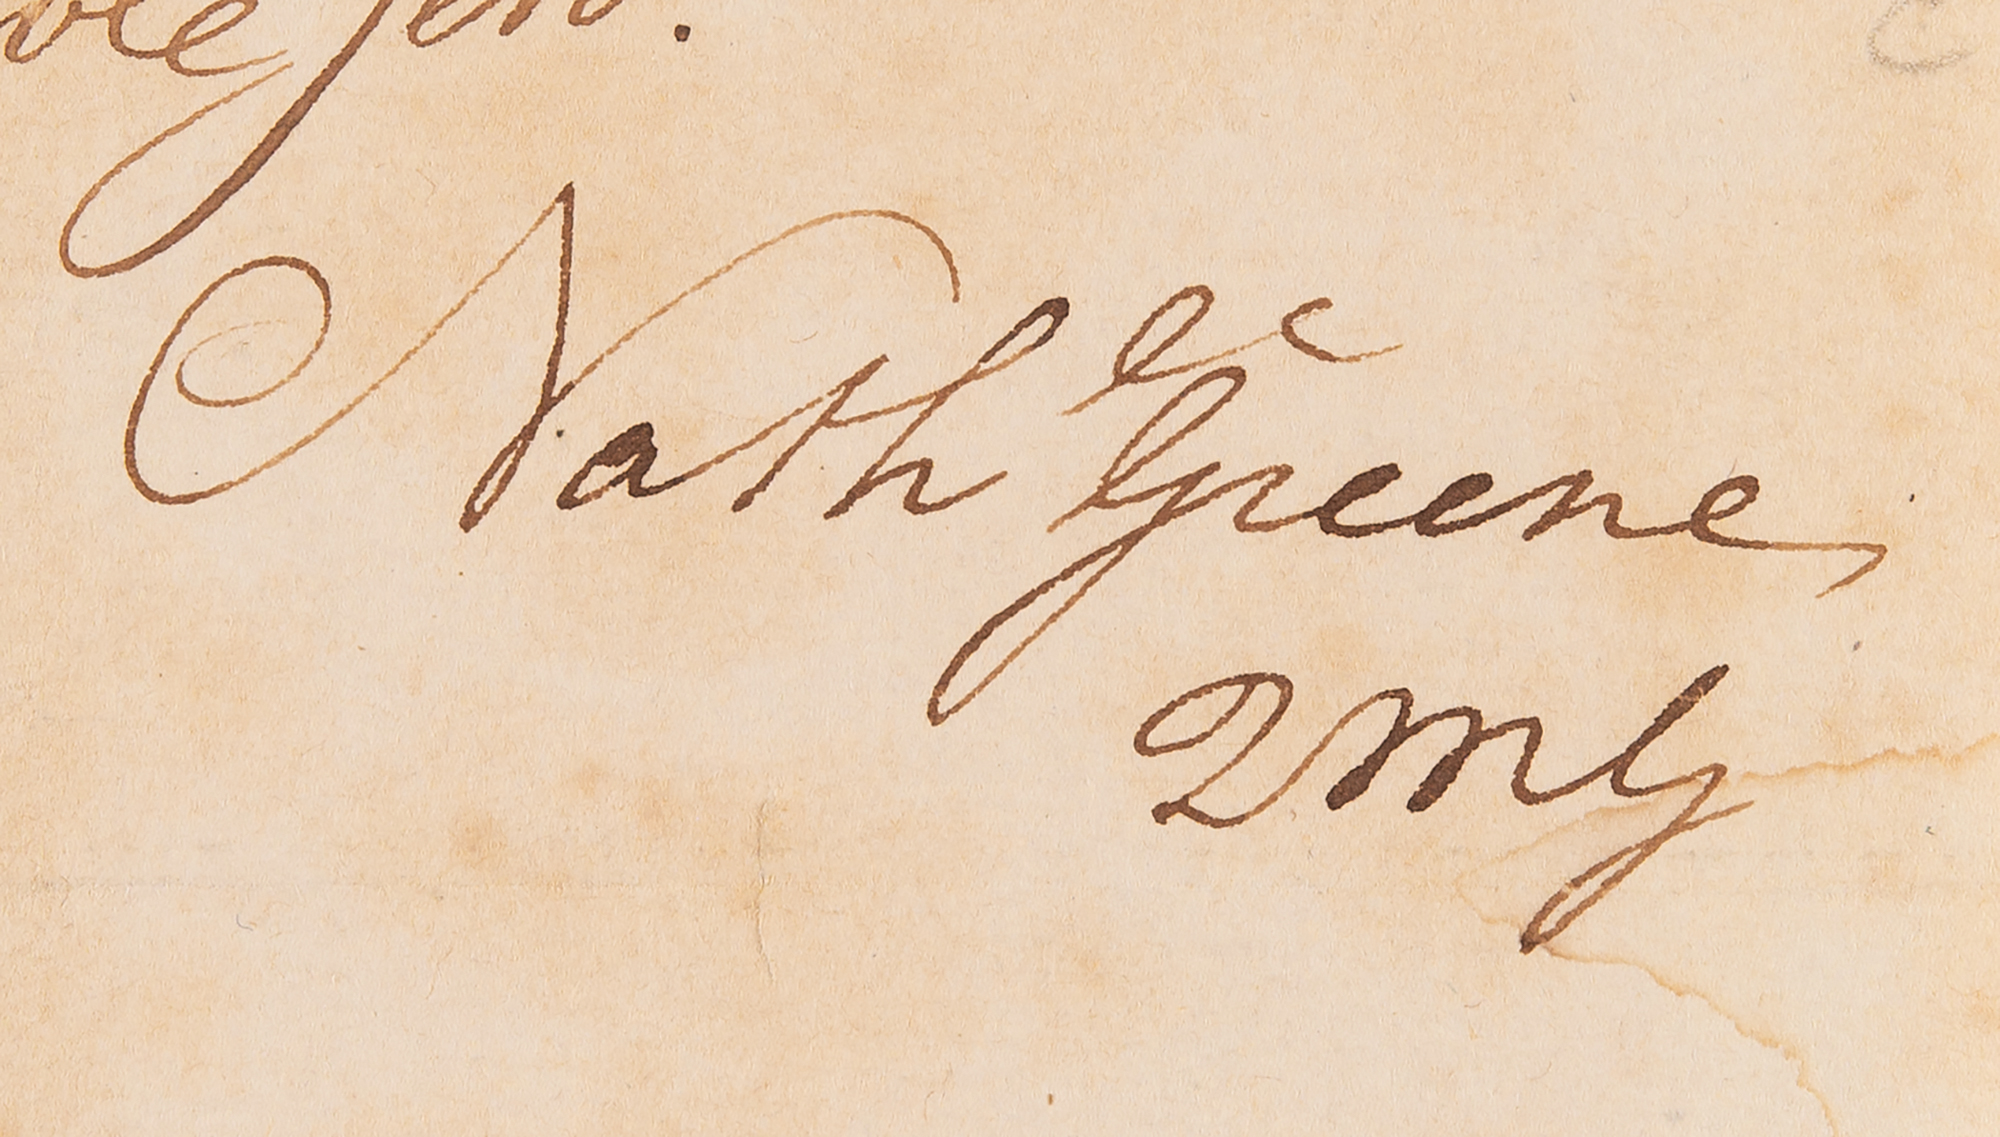 Nath Greene
QMG